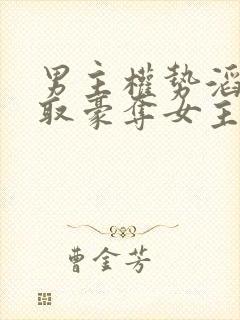 男主權勢滔
取豪奪女主
曹金芳